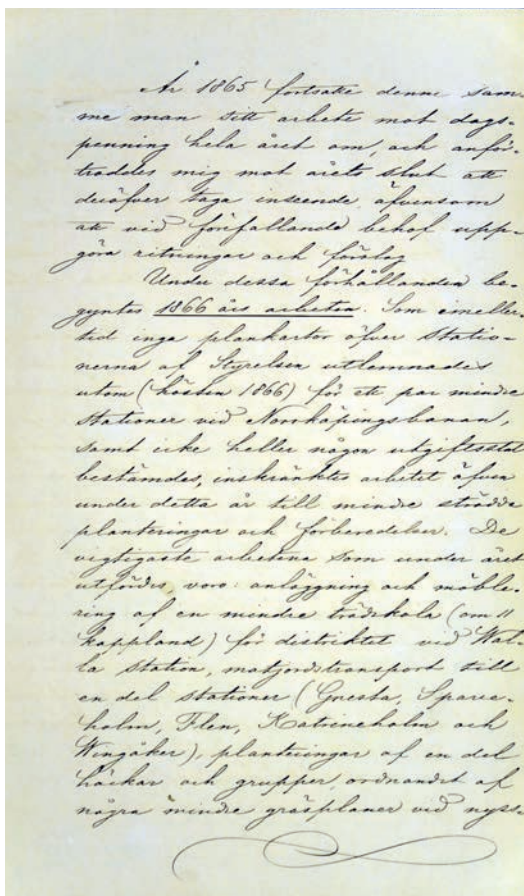 År 1865 fortsatte denne sam-
me man sitt arbete mot dags-
penning hela året om, och anför-
troddes mig mot årets slut att
deröfver taga inseende, äfvensom
att vid förfallande behof upp-
göra ritningar och förslag
Under dessa förhållanden be-
gyntes 1866 års arbeten. Som emeller-
tid inga plankartor öfver Statio-
nerna af Styrelsen utlemnades
utom (hösten 1866) för ett par mindre
Stationer vid Norrköpingsbanan,
samt icke heller någon utgiftsstat
bestämdes, inskränktes arbetet äfven
under detta år till mindre strödda
planteringar och förberedelser. De
vigtigaste arbetena som under året
utfördes, voro: anläggning och möble-
ring af en mindre trädskola (om 11
kappland) för distriktet vid Wal-
la Station, matjordstransport till
en del Stationer (Gnesta, Sparre-
holm, Flen, Katrineholm och
Wingåker), planteringar af en del
häckar och grupper, ordnandet af
några mindre gräsplaner vid nyss-